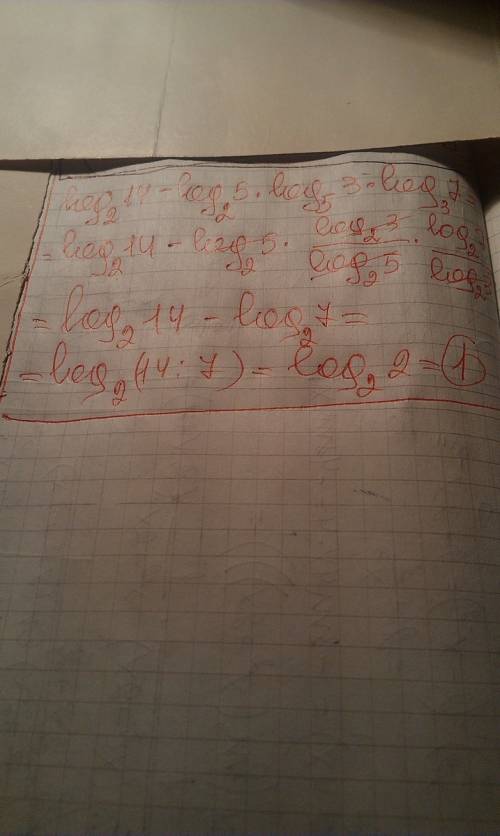 log₂14 - log₂5 · log₅3 · log₃7 =
= log₂14 - log₂5 · log₂3/log₂5 · log₂7/log₂3
= log₂14 - log₂7 =
= log₂(14 : 7) = log₂2 = 1